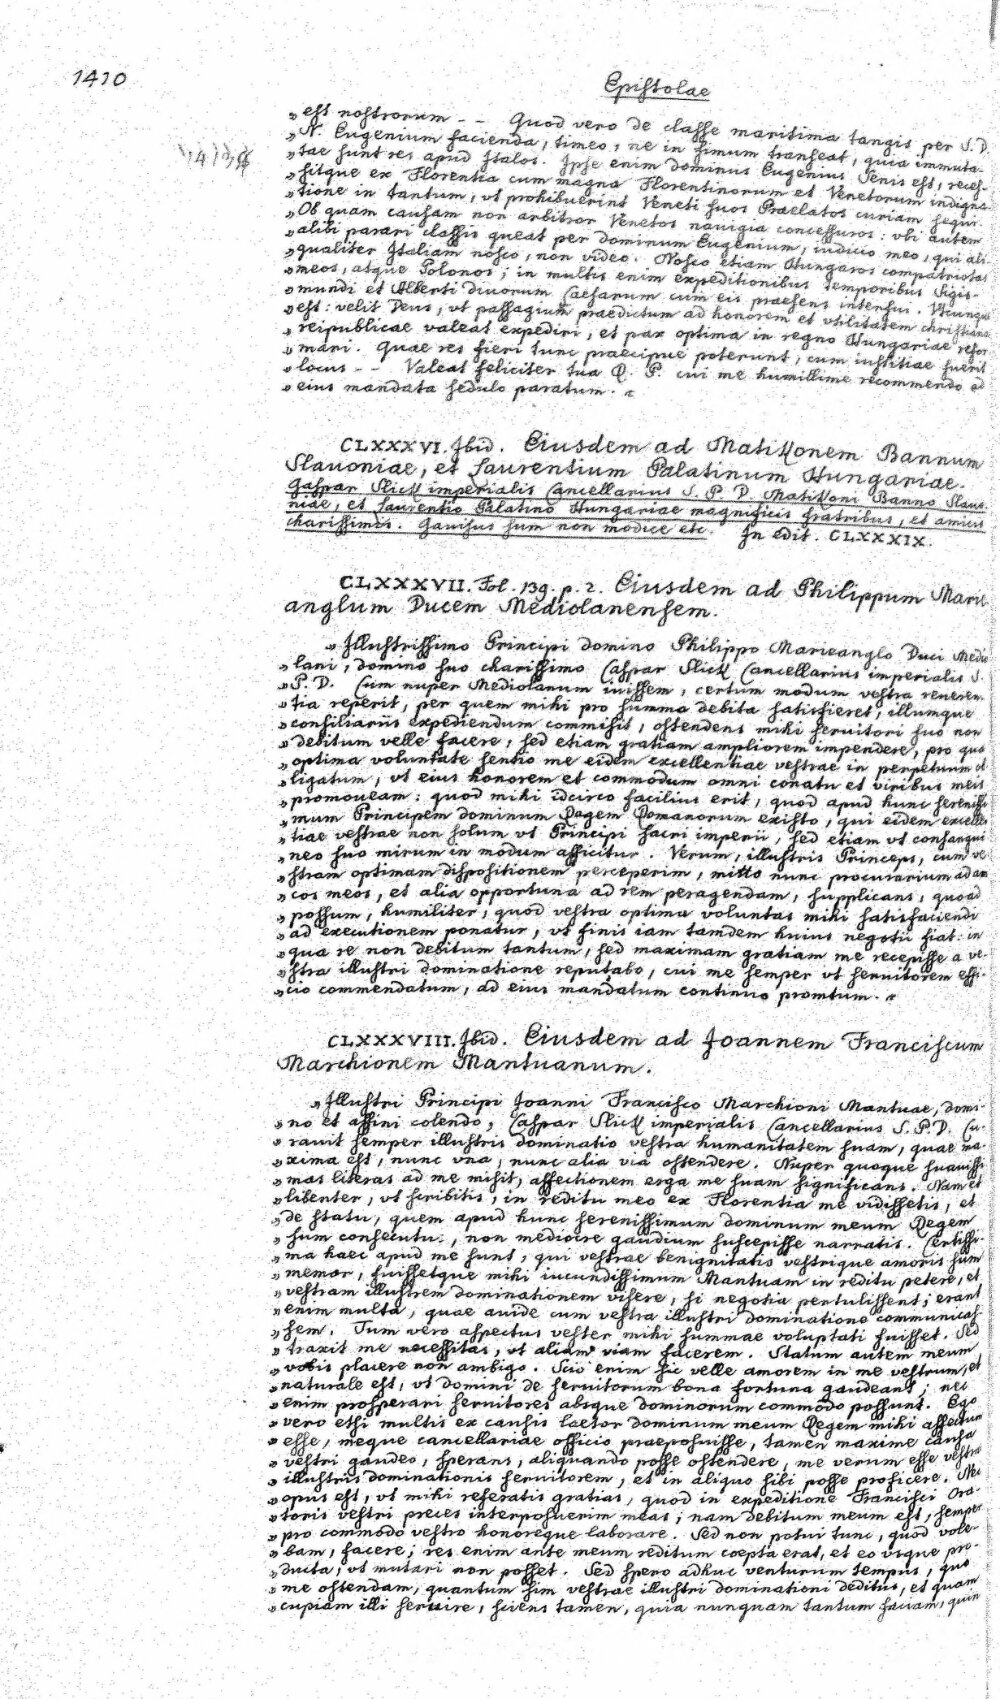 1410
Epistolae
„est nostrorum - - Quod vero de classe maritima tangis per S. D.
„N. Eugenium facienda, timeo, ne in fimum transeat, quia immuta-
„tae sunt res apud Italos. Ipse enim dominus Eugenius Senis est, reces-
„sitque ex Florentia cum magna Florentinorum et Venetorum indigna-
„tione in tantum, vt prohibuerint Veneti suos Praelatos curiam sequi.
„Ob quam causam non arbitror Venetos nauigia concessuros: vbi autem
„alibi parari classis queat per dominum Eugenium, iudicio meo, qui ali-
„qualiter Italiam nosco, non video. Nosco etiam Hungaros compatriotas
„meos, atque Polonos; in multis enim expeditionibus temporibus Sigis-
„mundi et Alberti diuorum Caesarum cum eis praesens interfui. Vtcunque
„est: velit Deus, vt passagium praedictum ad honorem et vtilitatem christianae
„reipublicae valeat expediri, et pax optima in regno Hungariae refor-
„mari. Quae res fieri tunc praecipue poterunt, cum iustitiae fuerit
„locus - - Valeat feliciter tua R. P. cui me humillime recommendo ad
„eius mandata sedulo paratum. “
CLXXXVI. Ibid. Eiusdem ad Matikonem Bannum
Slauoniae, et Laurentium Palatinum Hungariae.
Gaspar Slick imperialis Cancellarius S. P. D. Matikoni Banno Slauo-
niae, et Laurentio Palatino Hungariae magnificis fratribus, et amicis
charissimis. Gauisus sum non modice etc. In edit. CLXXXIX.
CLXXXVII. Fol. 139. p. 2. Eiusdem ad Philippum Mari-
anglum Ducem Mediolanensem.
„Illustrissimo Principi domino Philippo Marieanglo Duci Medio-
„lani, domino suo charissimo Caspar Slick Cancellarius imperialis S.
„P. D. Cum nuper Mediolanum iuissem, certum modum vestra reueren-
„tia reperit, per quem mihi pro summa debita satisfieret, illumque
„consiliariis expediendum commisit, ostendens mihi seruitori suo non
„debitum velle facere, sed etiam gratiam ampliorem impendere, pro qua
„optima voluntate sentio me eidem excellentiae vestrae in perpetuum ob-
„ligatum, vt eius honorem et commodum omni conatu et viribus meis
„promoueam: quod mihi idcirco facilius erit, quod apud hunc serenissi-
„mum Principem dominum Regem Romanorum existo, qui eidem excellen-
„tiae vestrae non solum vt Principi sacri imperii, sed etiam vt consangui-
„neo suo mirum in modum afficitur. Verum, illustris Princeps, cum ve-
„stram optimam dispositionem perceperim, mitto nunc procurarium ad ami-
„cos meos, et alia opportuna ad rem peragendam, supplicans, quoad
„possum, humiliter, quod vestra optima voluntas mihi satisfaciendi
„ad executionem ponatur, vt finis iam tamdem huius negotii fiat: in
„qua re non debitum tantum, sed maximam gratiam me recepisse a ve-
„stra illustri dominatione reputabo, cui me semper vt seruitorem effi-
„cio commendatum, ad eius mandatum continuo promtum. “
CLXXXVIII. Ibid. Eiusdem ad Joannem Franciscum
Marchionem Mantuanum.
„Illustri Principi Joanni Francisco Marchioni Mantuae, domi-
„no et affini colendo, Caspar Slick imperialis Cancellarius S. P. D. Cu-
„rauit semper illustris dominatio vestra humanitatem suam, quae ma-
„xima est, nunc vna, nunc alia via ostendere. Nuper quoque suauissi-
„mas literas ad me misit, affectionem erga me suam significans. Nam et
„libenter, vt scribitis, in reditu meo ex Florentia me vidissetis, et
„de statu, quem apud hunc serenissimum dominum meum Regem
„sum consecutus, non mediocre gaudium suscepisse narratis. Certissi-
„ma haec apud me sunt, qui vestrae benignitatis vestrique amoris sum
„memor, fuissetque mihi iucundissimum Mantuam in reditu petere, et
„vestram illustrem dominationem visere, si negotia pertulissent; erant
„enim multa, quae auide cum vestra illustri dominatione communicas-
„sem. Tum vero aspectus vester mihi summae voluptati fuisset. Sed
„traxit me necessitas, vt aliam viam facerem. Statum autem meum
„vobis placere non ambigo. Scio enim sic velle amorem in me vestrum, et
„naturale est, vt domini de seruitorum bona fortuna gaudeant; nec
„enim prosperari seruitores absque dominorum commodo possunt. Ego
„vero etsi multis ex causis laetor dominum meum Regem mihi affectum
„esse, meque cancellariae officio praeposuisse, tamen maxime causa
„vestri gaudeo, sperans, aliquando posse ostendere, me verum esse vestrae
„illustris dominationis seruitorem, et in aliquo sibi posse proficere. Nec
„opus est, vt mihi referatis gratias, quod in expeditione Francisci Ora-
„toris vestri preces interposuerim meas; nam debitum meum est, semper
„pro commodo vestro honoreque laborare. Sed non potui tunc, quod vole-
„bam, facere; res enim ante meum reditum coepta erat, et eo vsque pro-
„ducta, vt mutari non posset. Sed spero adhuc venturum tempus, quo
„me ostendam, quantum sim vestrae illustri dominationi deditus, et quam
„cupiam illi seruire, sciens tamen, quia nunquam tantum faciam, quin